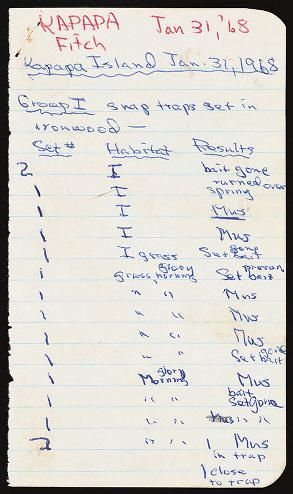 KAPAPA Jan 31, '68
Fitch
Kapapa Island Jan. 31, 1968
Group I snap traps set in
ironwood —
Set # Habitat Results
2 I bait gone
turned over
1 I spring
1 I Mus
1 I Mus
1 I grass Set bait gone
1 grass, glory morning Set bait
1 " " Mus
1 " " Mus
1 " " Mus
1 " " Set bait gone
1 glory Morning Mus
1 " " bait Set gone
1 " " " "
2 " " 1 Mus
in trap
1 close
to trap